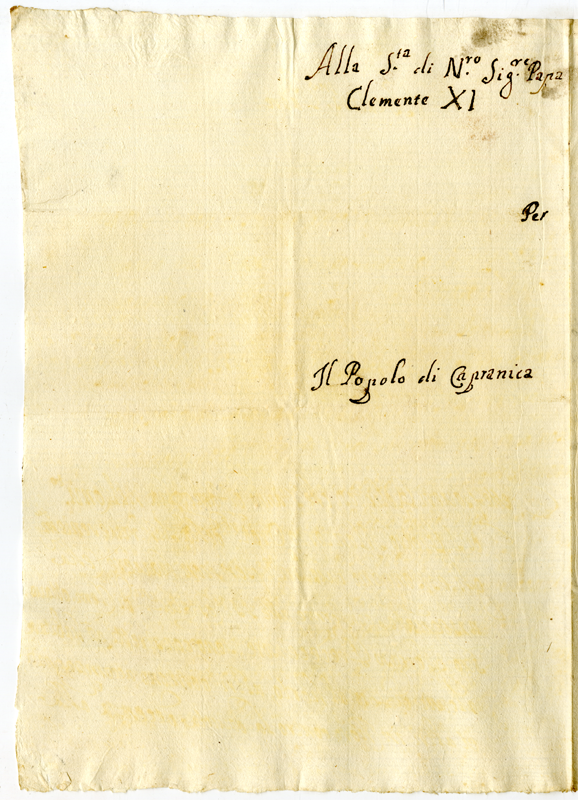 Alla S.ta di N.ro Sig.re Papa
Clemente XI
Per
Il Popolo di Capranica